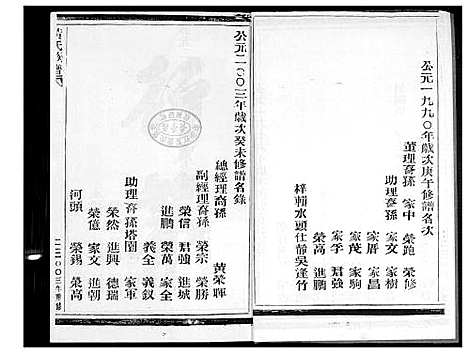 公元一九九〇年歲次庚午修譜名次
董理裔孫 家中 榮跑 榮修
助理裔孫 家文 家樹
家厝 家昌
家茂 家駒
家孚 君強
榮高 進鵬
梓輔水頭仕靜吳逢竹
公元二〇〇三年歲次癸未修譜名錄
總經理裔孫 黃榮暉
副經理裔孫 榮宗 榮勝
榮信 君強 進城
進鵬 榮萬 家全
義全 義釵
助理裔孫塔園 家軍
榮然 進興 德瑞
榮億 家文 進朝
河頭 榮錫 榮高
二〇〇三年